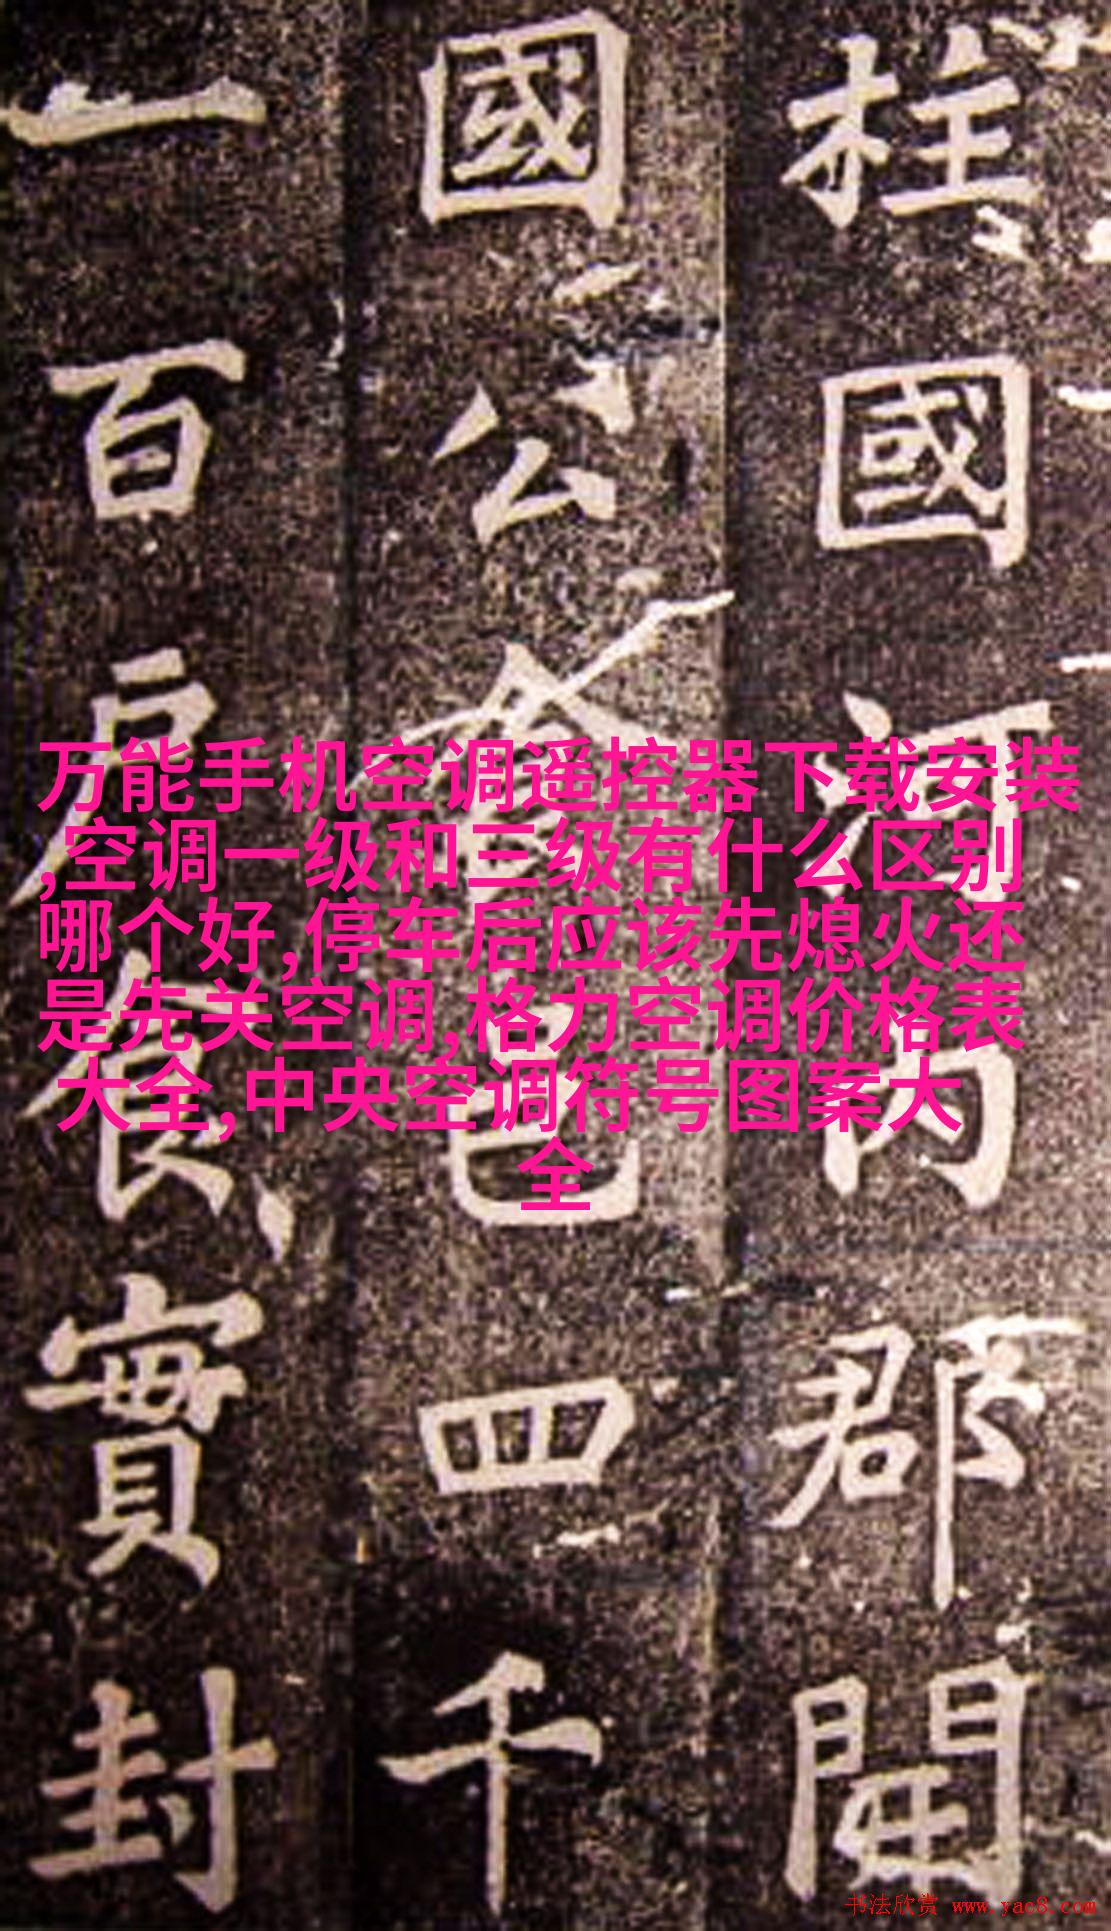 柱國河内郡開
國公食邑四千
一百户食實封
万能手机空调遥控器下载安装
,空调一级和三级有什么区别
哪个好,停车后应该先熄火还
是先关空调,格力空调价格表
大全,中央空调符号图案大
全
书法欣赏 www.yac8.com